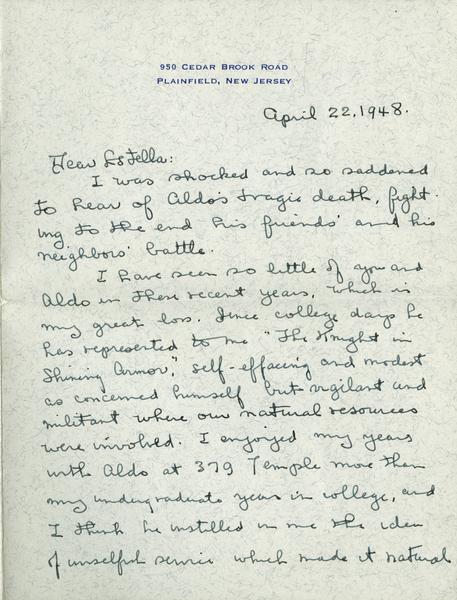 950 CEDAR BROOK ROAD
PLAINFIELD, NEW JERSEY
April 22, 1948.
Dear Estella:
I was shocked and so saddened
to hear of Aldo's tragic death, fight-
ing to the end his friends' and his
neighbors' battle.
I have seen so little of you and
Aldo in these recent years, which is
my great loss. Since college days he
has represented to me "The Knight in
Shining Armor," self-effacing and modest
as concerned himself but vigilant and
militant where our natural resources
were involved. I enjoyed my years
with Aldo at 379 Temple more than
my undergraduate years in college, and
I think he instilled in me the idea
of unselfish service which made it natural